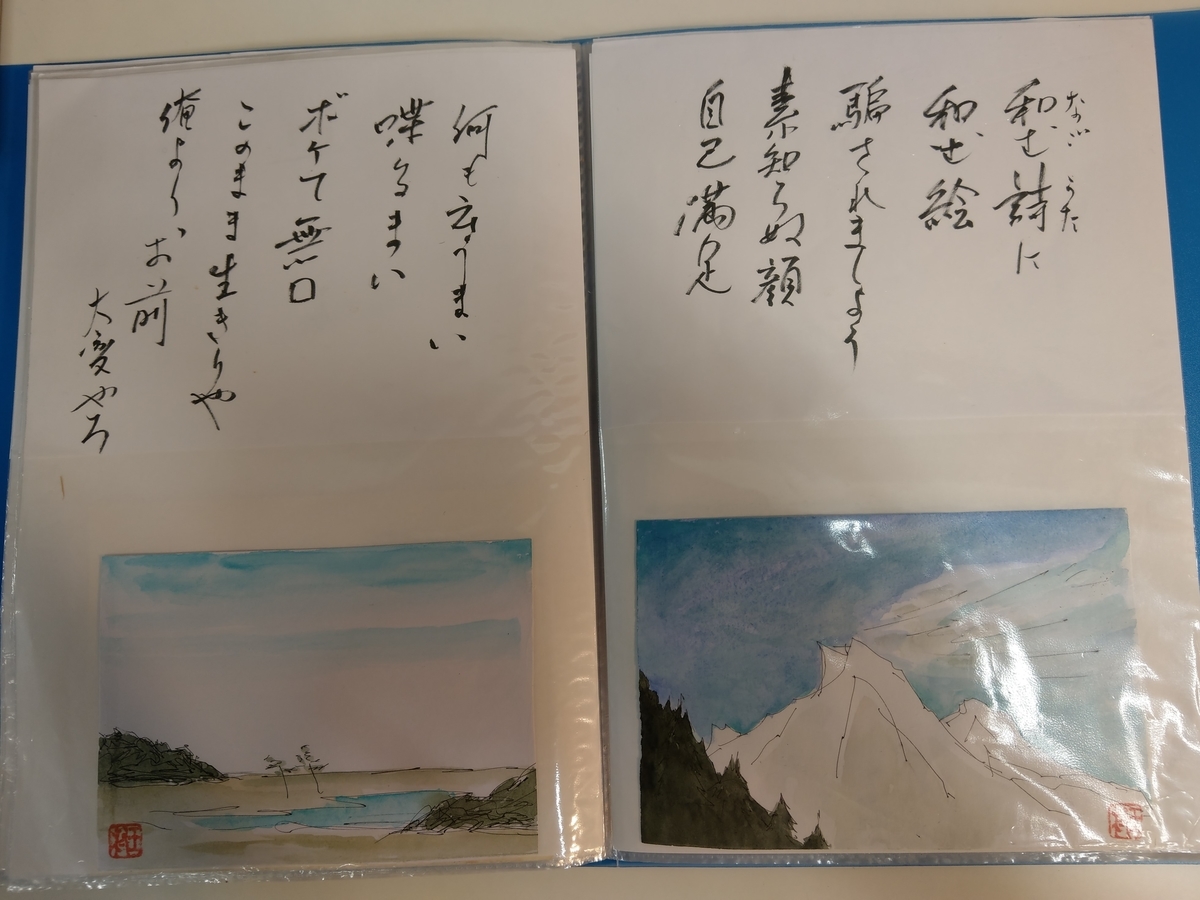 和む詩に
なご うた
和む絵
騙されましょう
素知らぬ顔
自己満足
何も言うまい
喋るまい
ボケて無口
このまま生きりゃ
俺より、お前
大変やろ